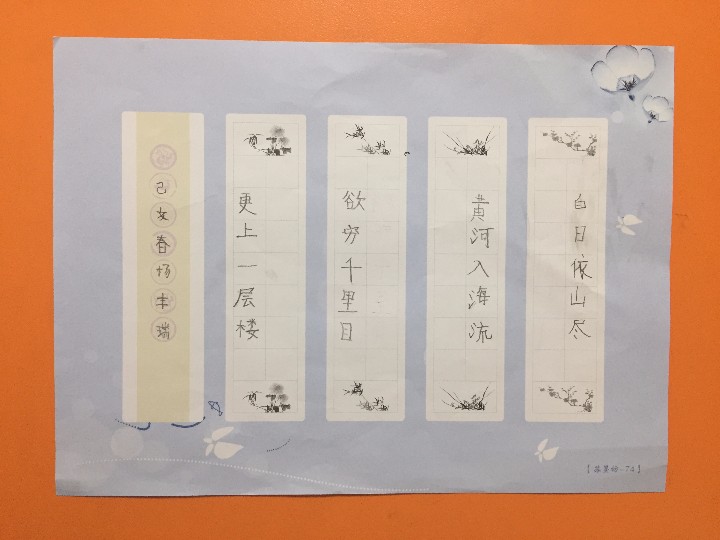 白日依山尽
黄河入海流
欲穷千里目
更上一层楼
己亥春杨丰瑞